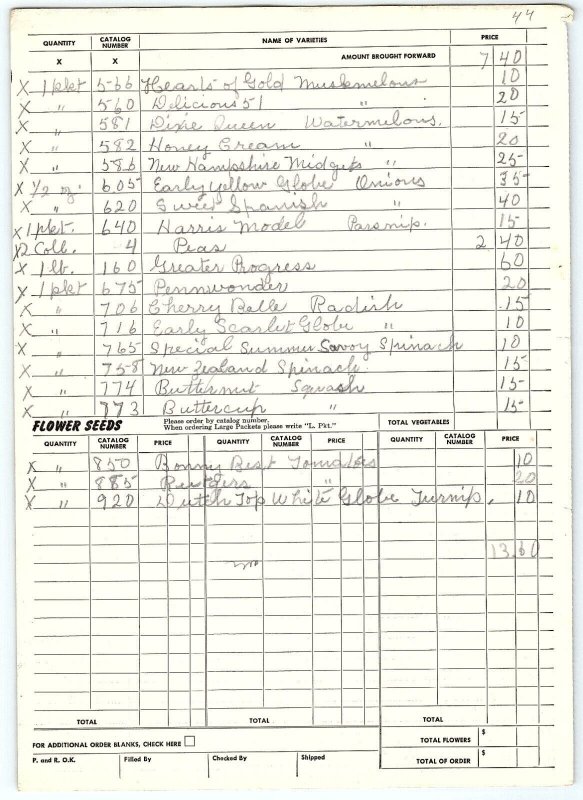 44
QUANTITY CATALOG NUMBER NAME OF VARIETIES PRICE
X X AMOUNT BROUGHT FORWARD 7 40
X 1 pkt 566 Hearts of Gold Muskmelons 10
X " 560 Delicious 51 " 20
X " 581 Dixie Queen Watermelons. 15
X " 582 Honey Cream " 20
X " 586 New Hampshire Midgets " 25
X 1/2 oz. 605 Early Yellow Globe Onions 35
X " 620 Sweet Spanish " 40
X 1 pkt. 640 Harris Model Parsnip. 15
X 2 Coll. 4 Peas 2 40
X 1 lb. 160 Greater Progress 60
X 1 pkt 675 Pennwonder 20
X " 706 Cherry Belle Radish .15
X " 716 Early Scarlet Globe " 10
X " 765 Special Summer Savoy Spinach 10
X " 758 New Zealand Spinach. 15
X " 774 Butternut Squash 15
X " 773 Buttercup " 15
FLOWER SEEDS Please order by catalog number. When ordering Large Packets please write "L. Pkt." TOTAL VEGETABLES
QUANTITY CATALOG NUMBER PRICE QUANTITY CATALOG NUMBER PRICE QUANTITY CATALOG NUMBER PRICE
X " 850 Bonny Best Tomatoes 10
X " 885 Rutgers " 20
X " 920 Dutch Top White Globe Turnip. 10
13.60
TOTAL TOTAL TOTAL
FOR ADDITIONAL ORDER BLANKS, CHECK HERE TOTAL FLOWERS $
P. and R. O.K. Filled By Checked By Shipped TOTAL OF ORDER $